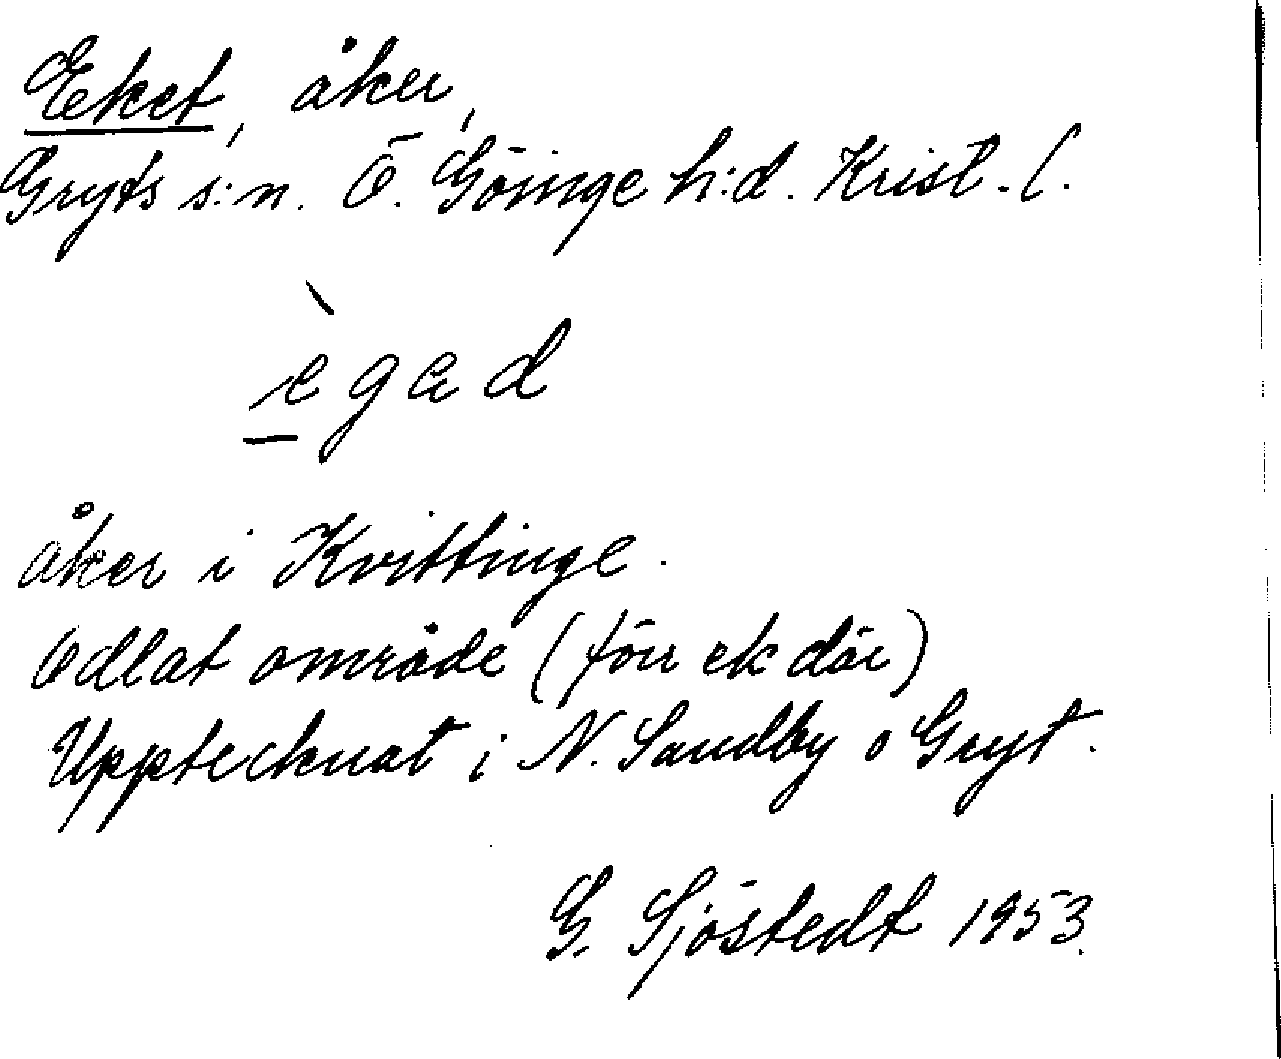 Eket, åker,
Gryts s:n. Ö. Göinge h:d. Krist. l.
ègæd
åker i Kvittinge.
Odlat område (förr ek där)
Upptecknat i N. Sandby o Gryt.
G. Sjöstedt 1953.